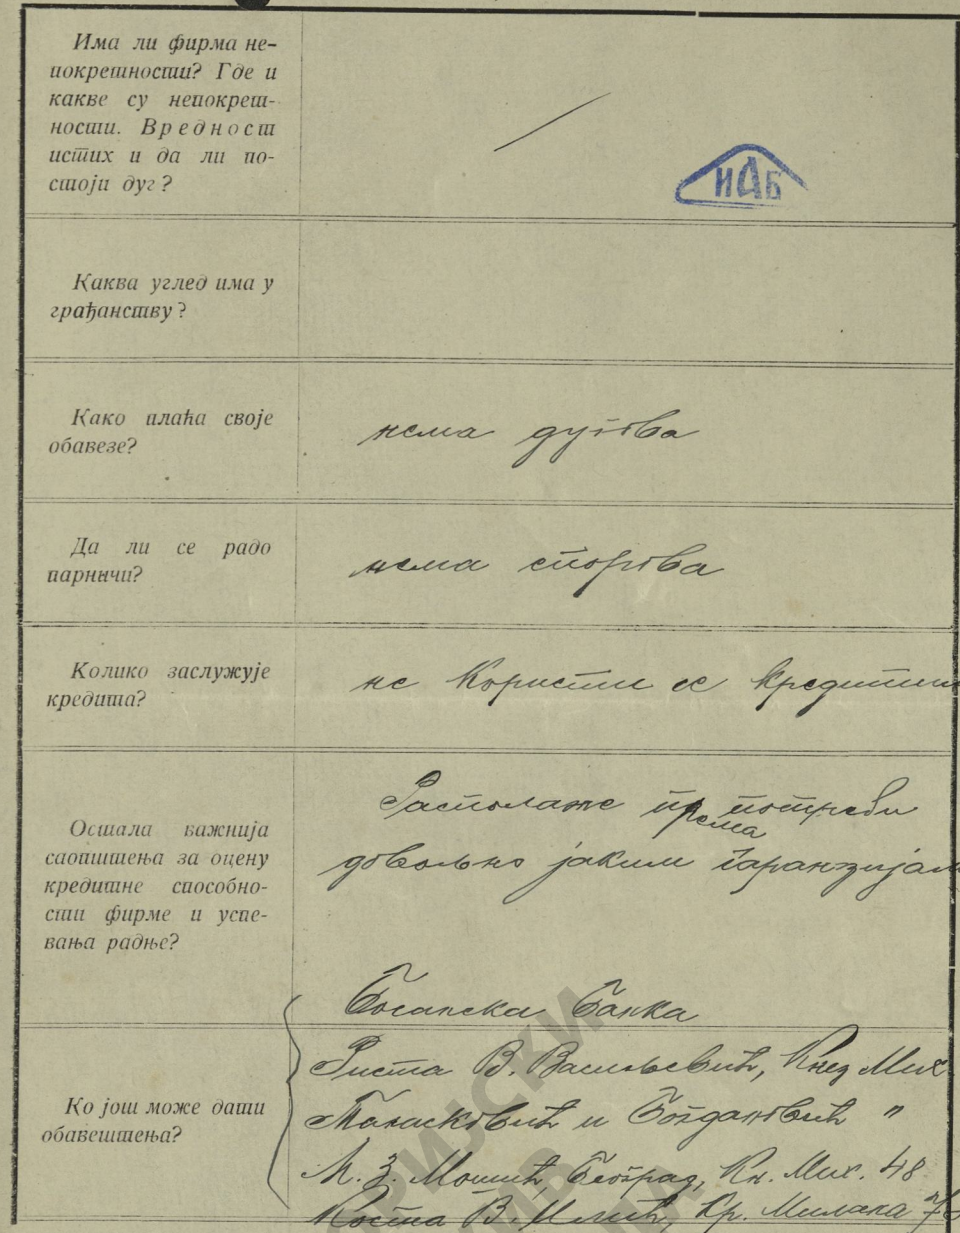 Има ли фирма не-
покретности? Где и
какве су непокрет-
ности. Вредност
истих и да ли по-
стоји дуг?
/
ИАБ
Каква углед има у
грађанству?
Како плаћа своје
обавезе?
нема дугова
Да ли се радо
парничи?
нема спорова
Колико заслужује
кредита?
не користи се кредитим
Остала важнија
саопштења за оцену
кредитне способно-
сти фирме и успе-
вања радње?
Располаже према потреби
довољно јаким гаранцијам
Босанска Банка
Ко још може дати
обавештења?
Риста В. Васиљевић, Кнез Мих.
и Богдановић "
М. З. Београд, Кн. Мих. 48
Коста В. Илић, Кр. Милана
РИЈСКИ